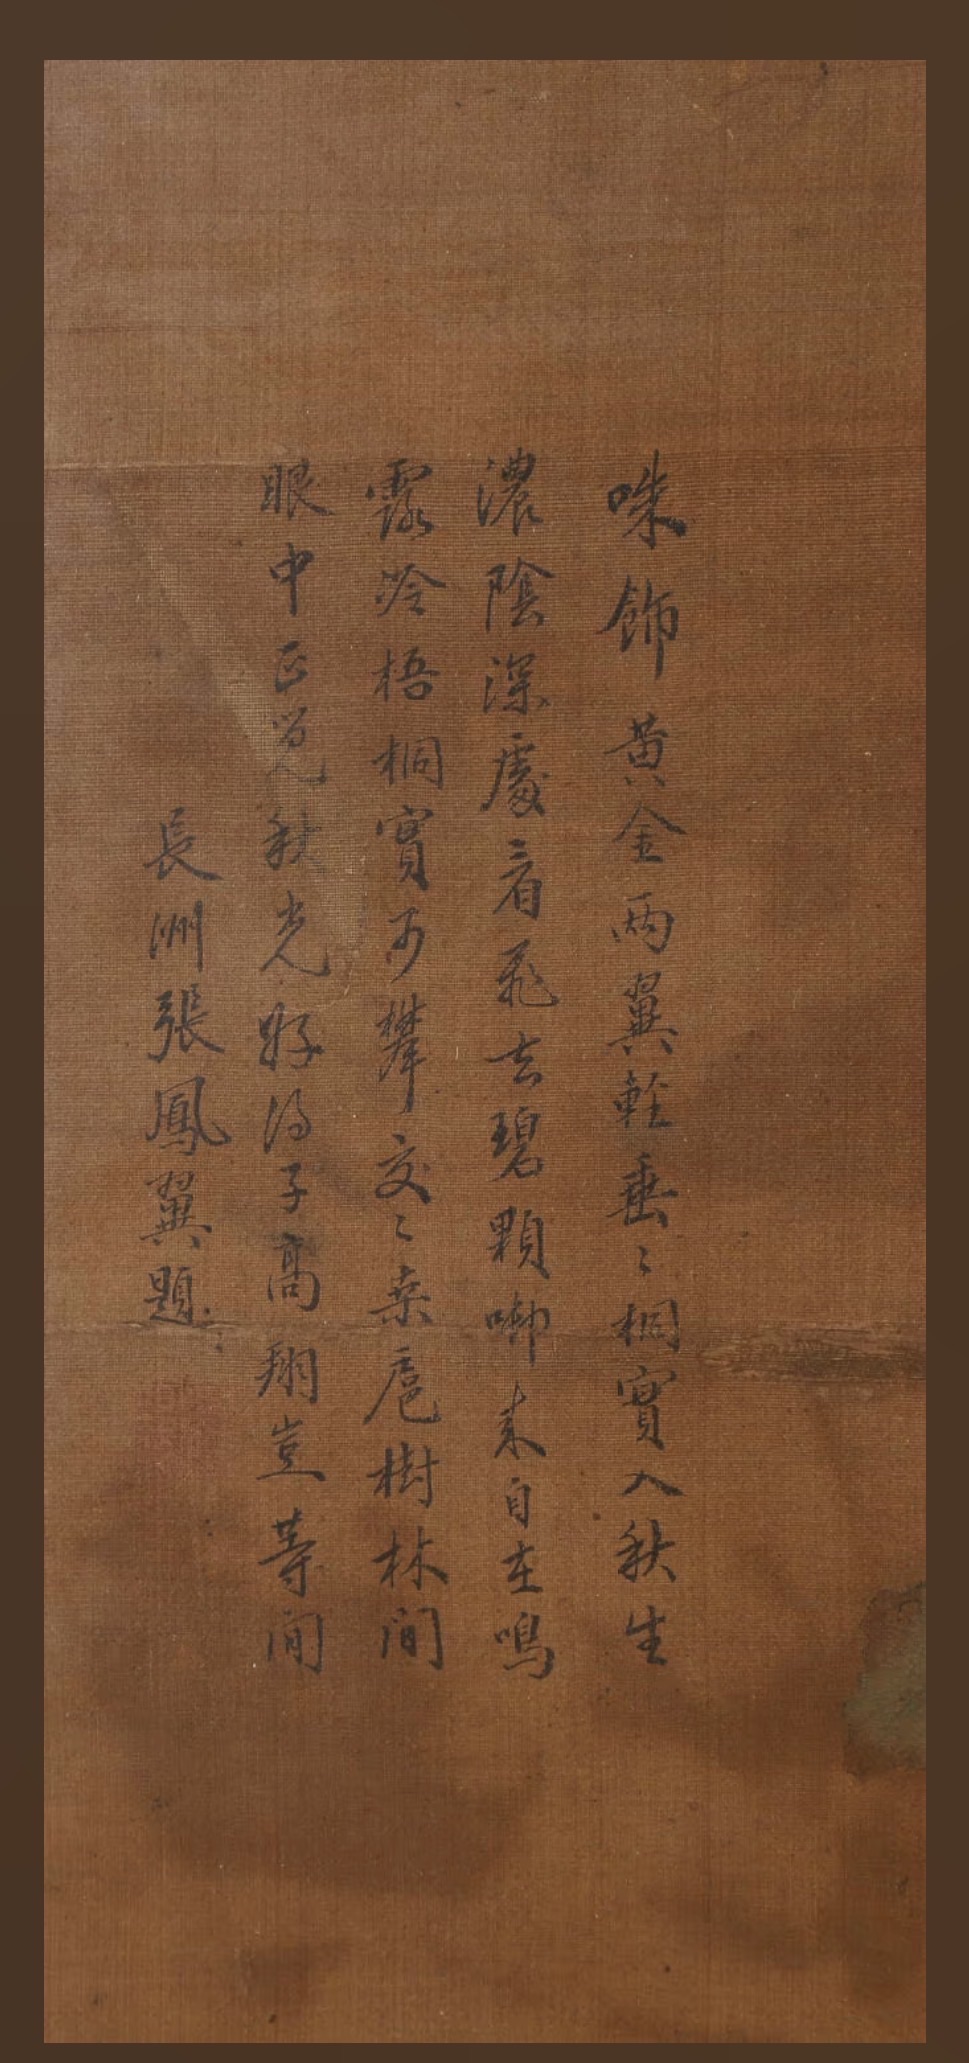 咮飾黄金兩翼輕垂〻桐實入秋生
濃陰深處看飛去碧顆啣来自在鳴
露冷梧桐實可攀交〻桑扈樹林間
眼中正覓秋光好得子高翔豈等閒
長洲張鳳翼題